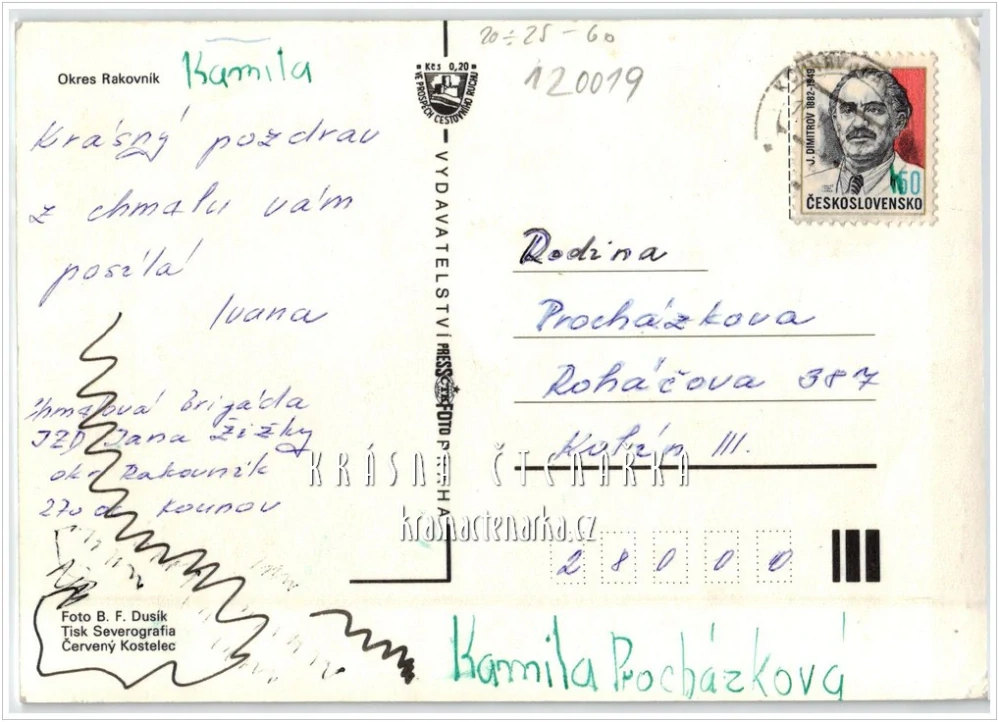 Okres Rakovník
Kamila
Krásný pozdrav
z chmalu vám
posílá
Ivana
Chmalová Brigáda
JZD Jana Žižky
okr Rakovník
Kounov
Foto B. F. Dusík
Tisk Severografia
Červený Kostelec
Kčs 0,20
VE PROSPĚCH CESTOVNÍHO RUCHU
VYDAVATELSTVÍ PRESSFOTO PRAHA
ČTK
20÷25-60
120019
J. DIMITROV 1882-1949
60
ČESKOSLOVENSKO
Rodina
Procházkova
Roháčova 387
Kolín III.
28000
KRÁSNÁ ČTENÁŘKA
krasnactenarka.cz
Kamila Procházková